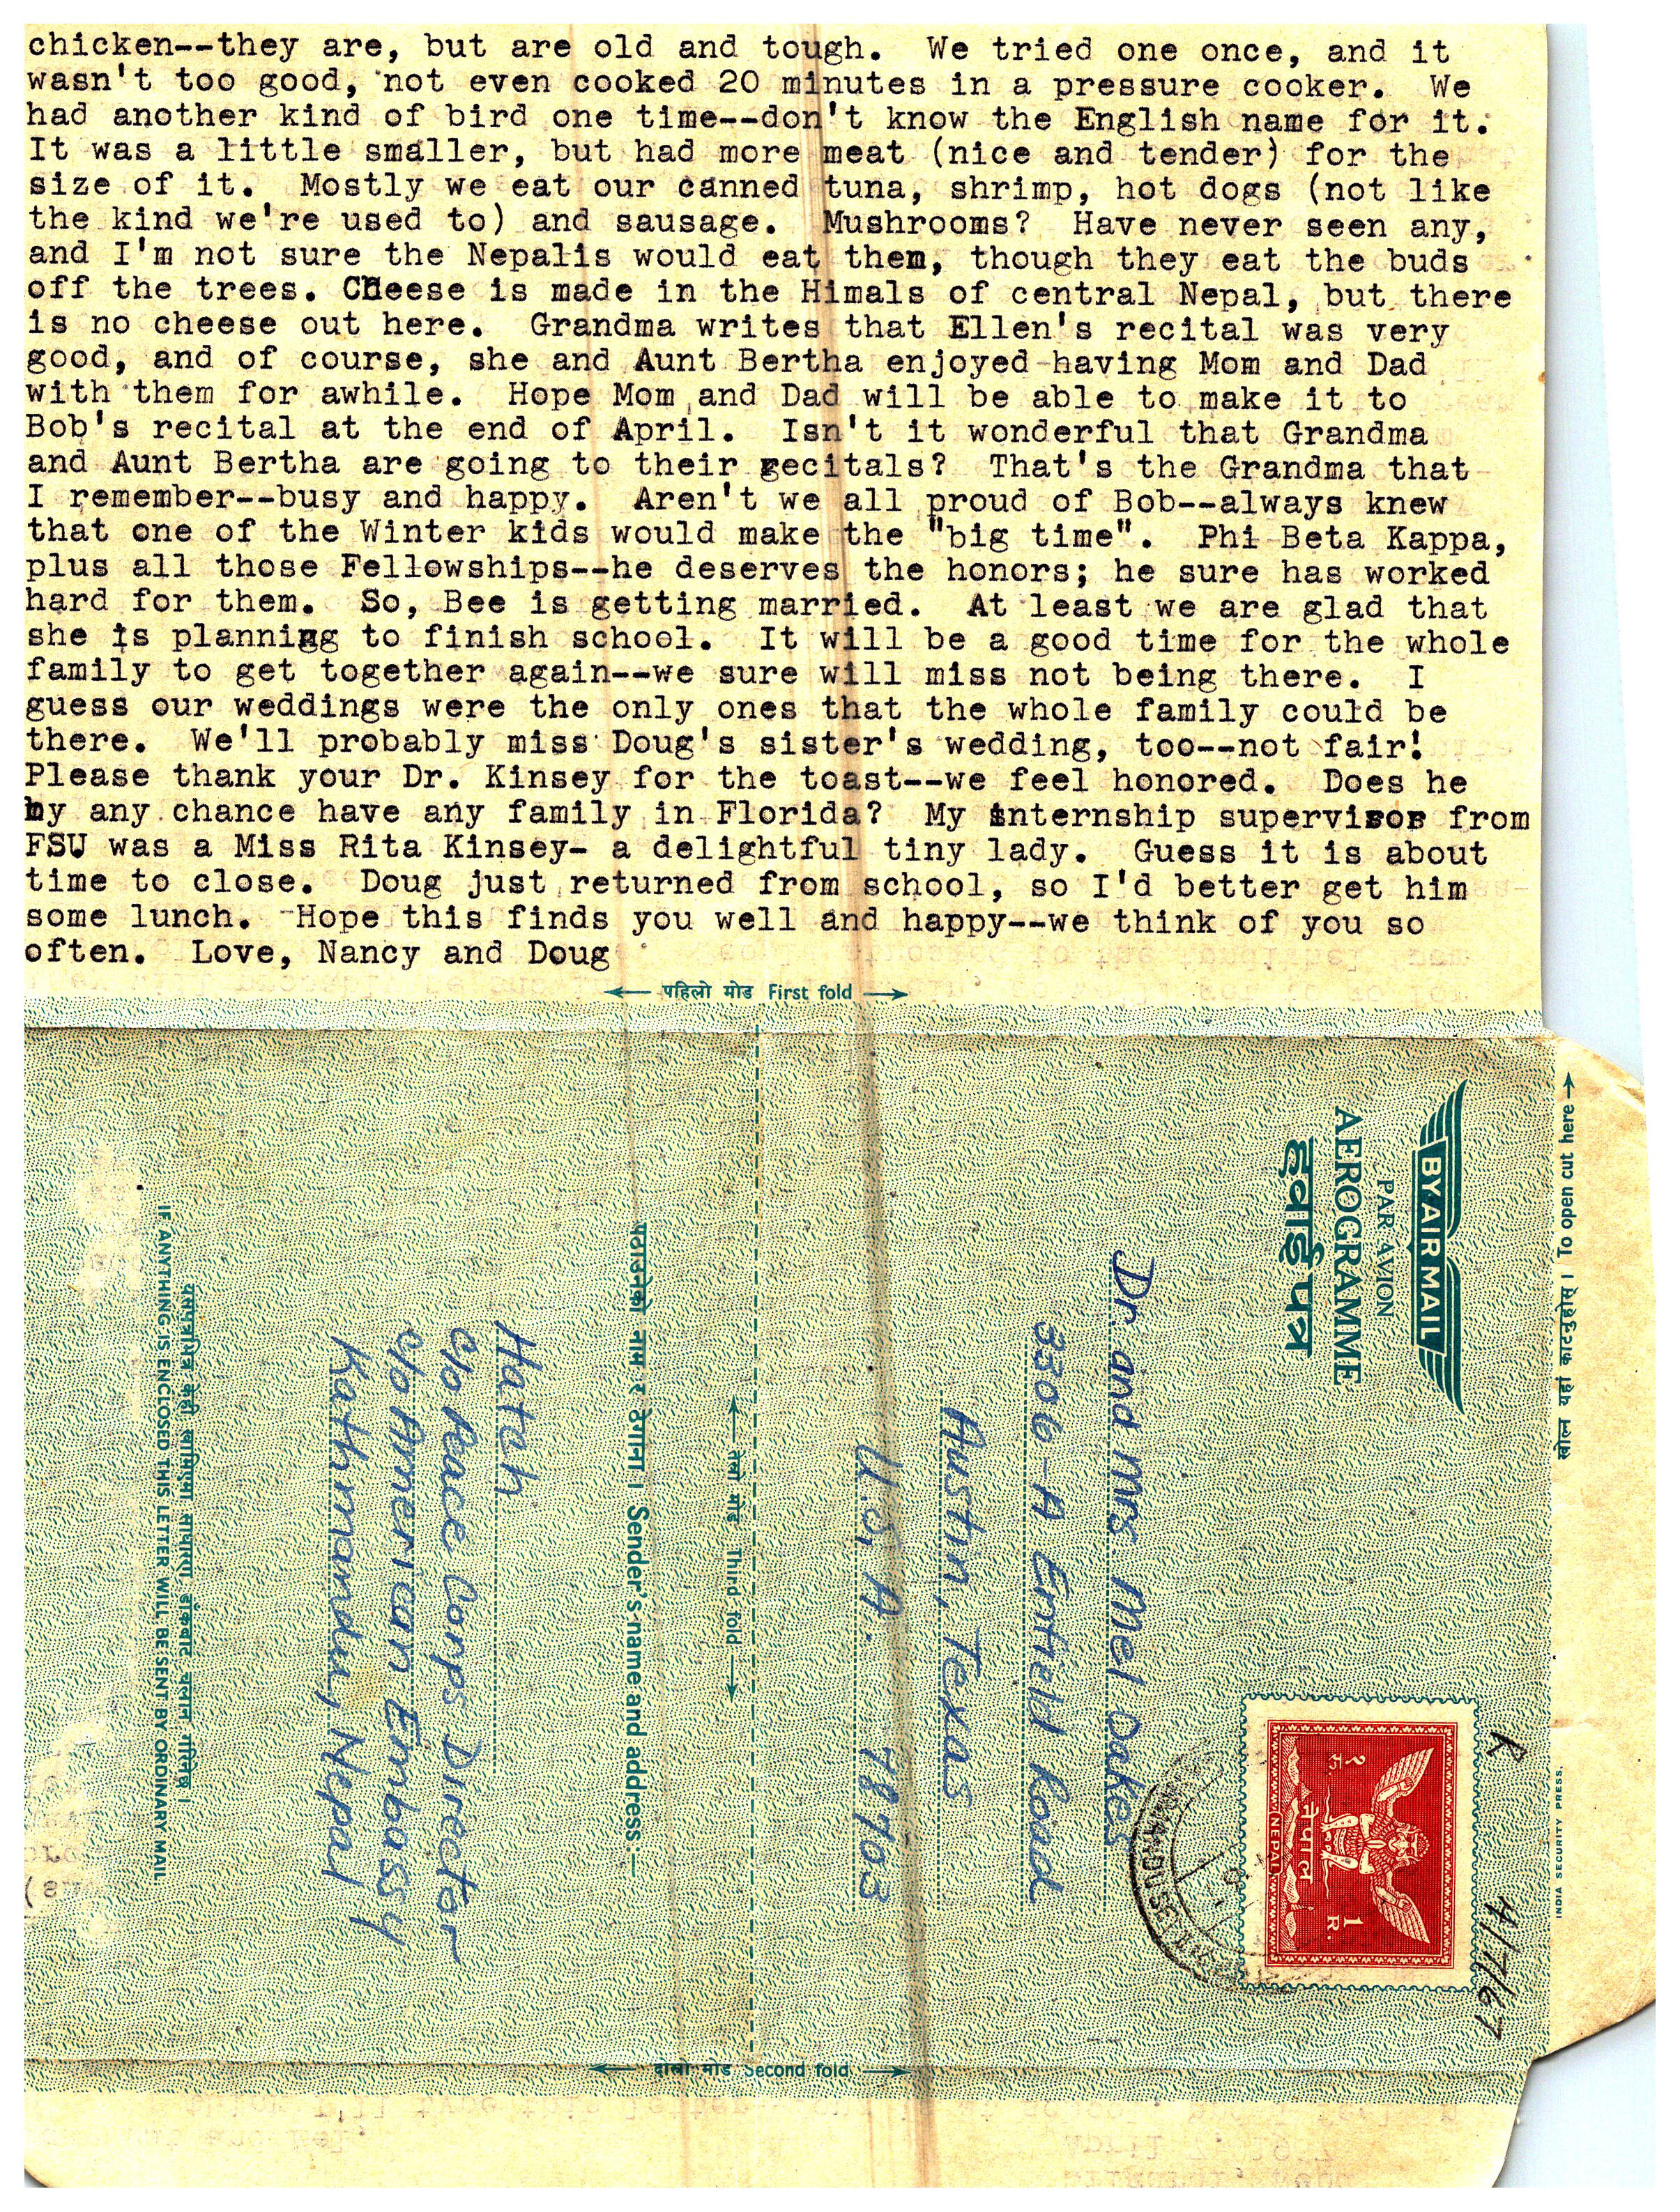 chicken--they are, but are old and tough.  We tried one once, and it
wasn't too good, not even cooked 20 minutes in a pressure cooker.  We
had another kind of bird one time--don't know the English name for it.
It was a little smaller, but had more meat (nice and tender) for the
size of it.  Mostly we eat our canned tuna, shrimp, hot dogs (not like
the kind we're used to) and sausage.  Mushrooms?  Have never seen any,
and I'm not sure the Nepalis would eat them, though they eat the buds
off the trees. Cheese is made in the Himals of central Nepal, but there
is no cheese out here.  Grandma writes that Ellen's recital was very
good, and of course, she and Aunt Bertha enjoyed having Mom and Dad
with them for awhile.  Hope Mom and Dad will be able to make it to
Bob's recital at the end of April.  Isn't it wonderful that Grandma
and Aunt Bertha are going to their recitals?  That's the Grandma that
I remember--busy and happy.  Aren't we all proud of Bob--always knew
that one of the Winter kids would make the "big time".  Phi Beta Kappa,
plus all those Fellowships--he deserves the honors; he sure has worked
hard for them.  So, Bee is getting married.  At least we are glad that
she is planning to finish school.  It will be a good time for the whole
family to get together again--we sure will miss not being there.  I
guess our weddings were the only ones that the whole family could be
there.  We'll probably miss Doug's sister's wedding, too--not fair!
Please thank your Dr. Kinsey for the toast--we feel honored.  Does he
by any chance have any family in Florida?  My internship supervisor from
FSU was a Miss Rita Kinsey- a delightful tiny lady.  Guess it is about
time to close.  Doug just returned from school, so I'd better get him
some lunch.  Hope this finds you well and happy--we think of you so
often.  Love, Nancy and Doug
पहिलो मोड First fold
खोल्न यहां काट्नुहोस् । To open cut here
INDIA SECURITY PRESS.
R 4/7/67
BY AIR MAIL
PAR AVION
AEROGRAMME
हवाईपत्र
२ रु
नेपाल
1 R.
NEPAL
Dr. and Mrs Mel Oakes
3306-A Enfield Road
Austin, Texas
U.S.A. 78703
तेस्रो मोड Third fold
पठाउनेको नाम र ठेगाना । Sender's name and address:—
Hatch
c/o Peace Corps Director
c/o American Embassy
Kathmandu, Nepal
यसपत्रभित्र केही साधारण डाँकबाट चलान गरिनेछ ।
IF ANYTHING IS ENCLOSED THIS LETTER WILL BE SENT BY ORDINARY MAIL
दोस्रो मोड Second fold